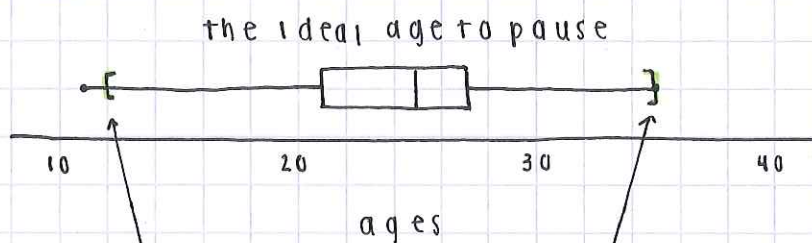 the ideal age to pause
10 20 30 40
ages